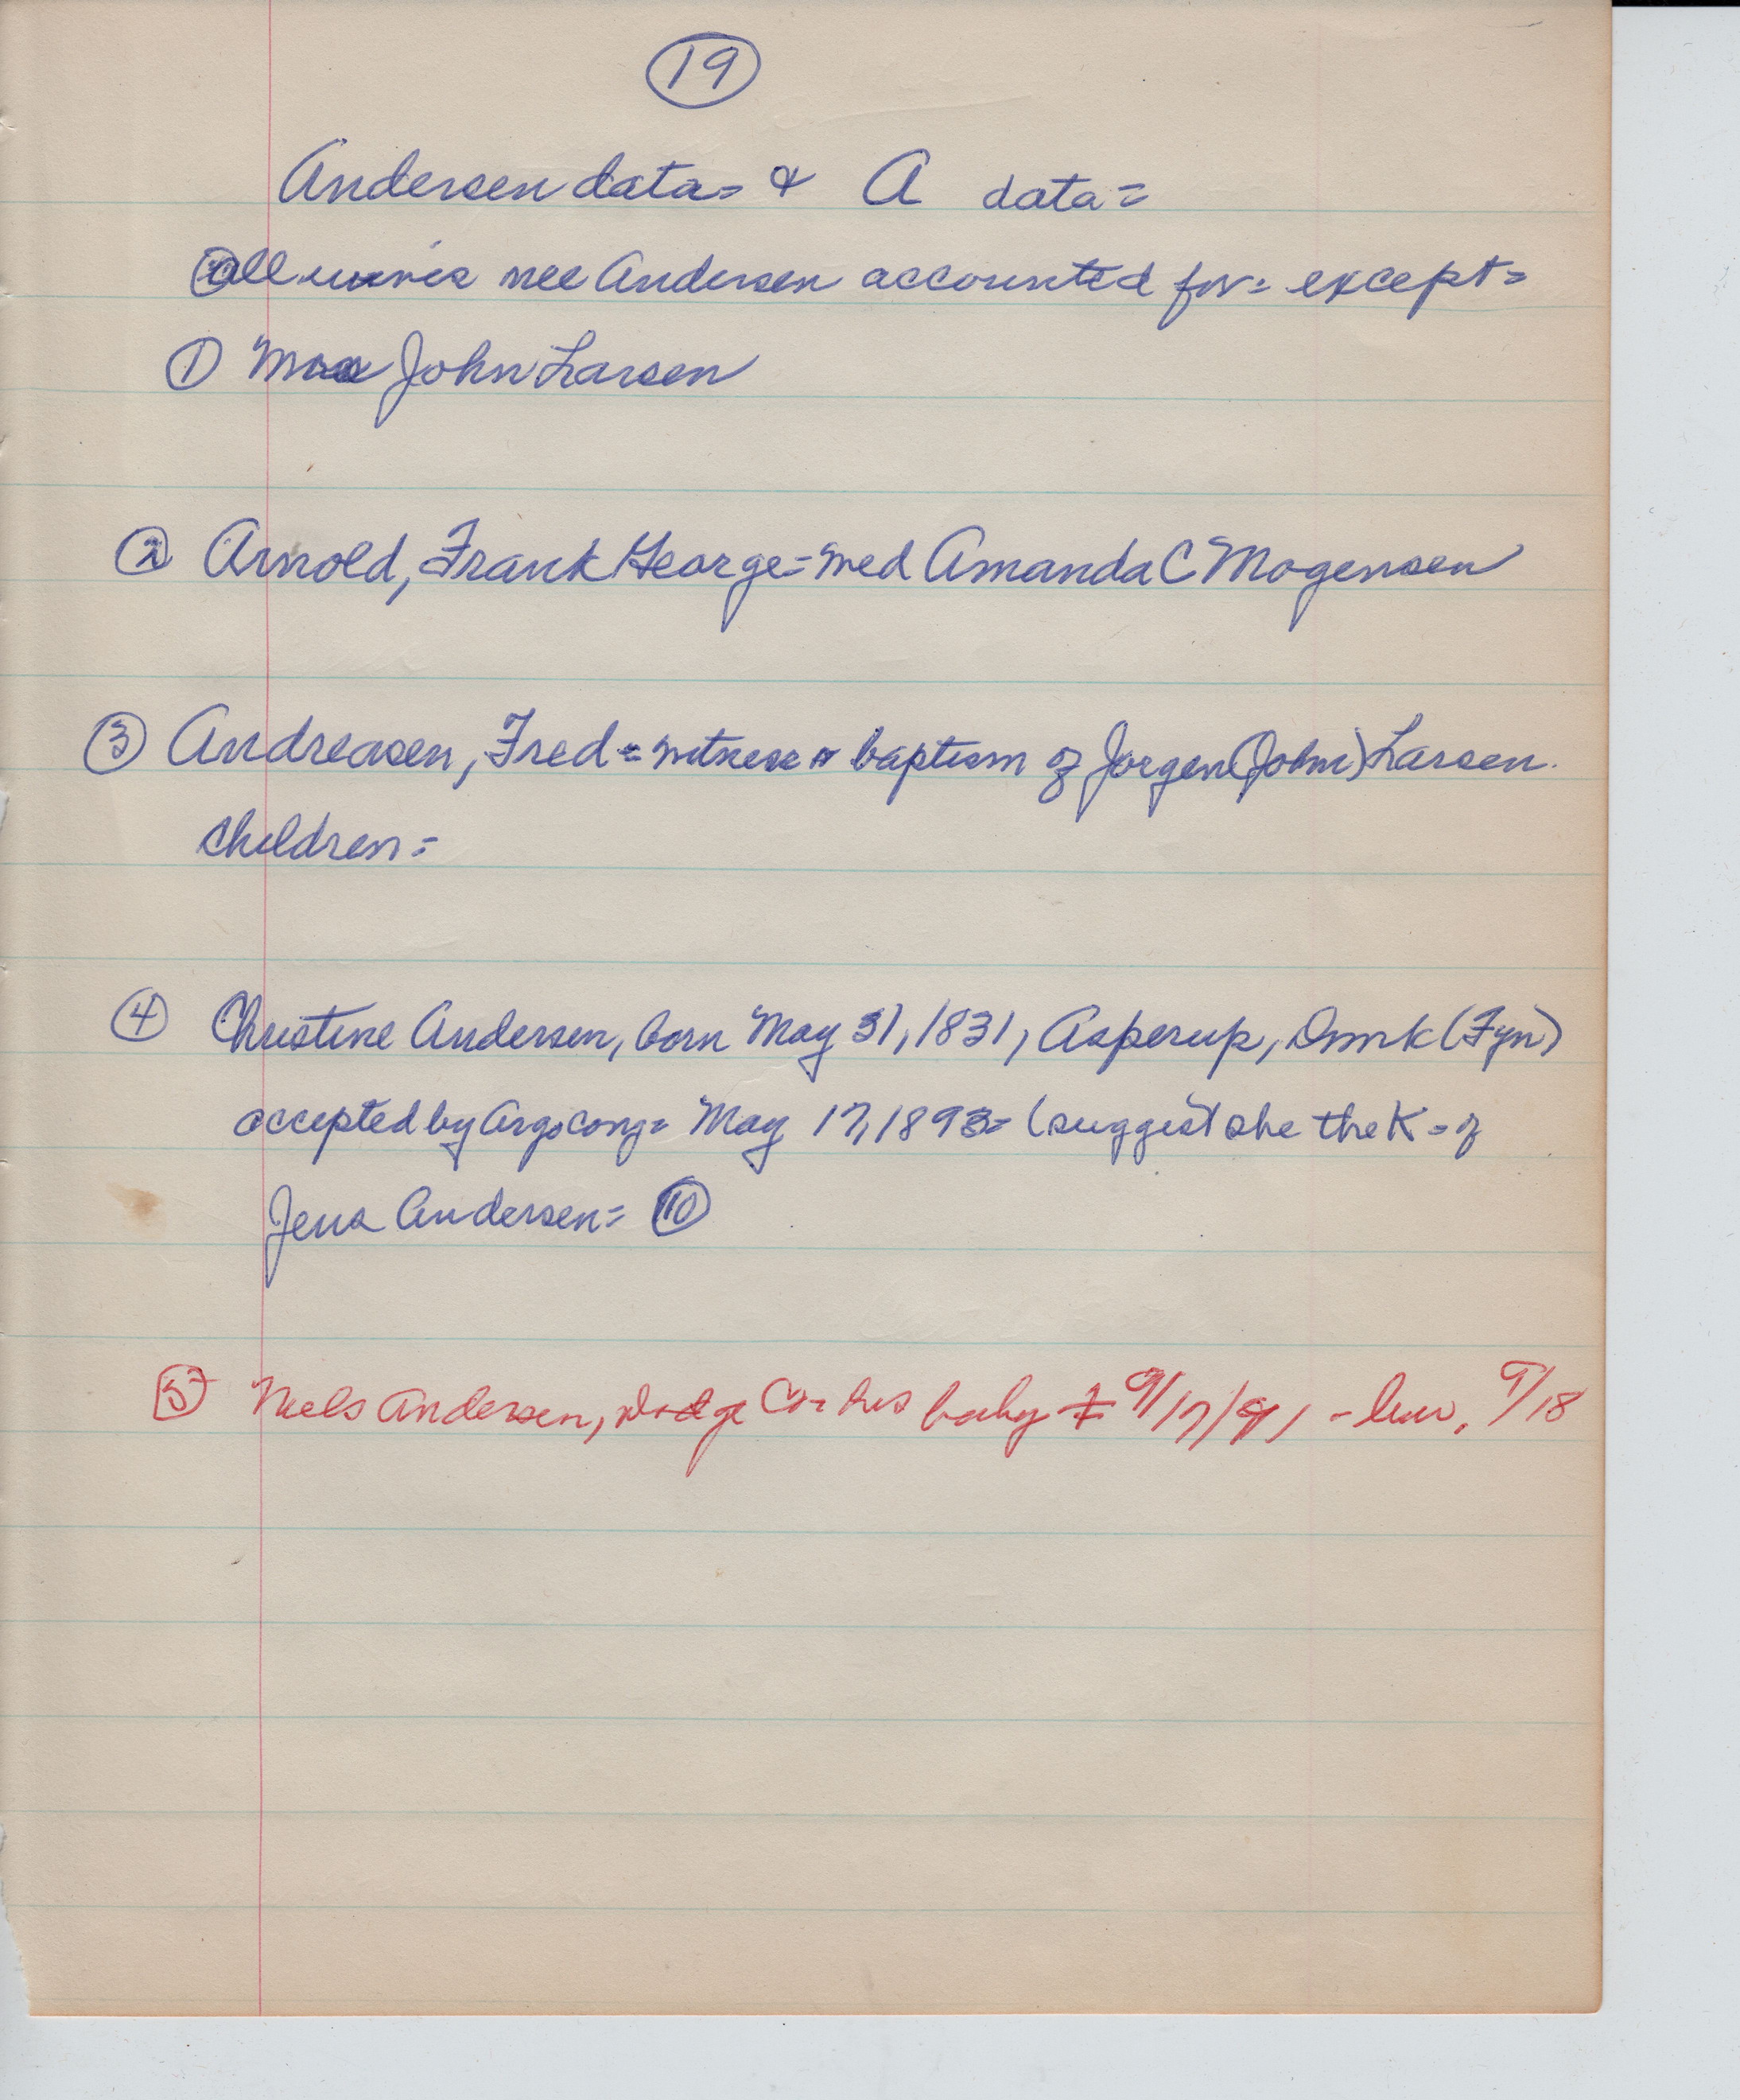 19
Andersen data = & A data =
all wives nee Andersen accounted for = except =
① Mrs John Larsen
② Arnold, Frank George = med Amanda C Mogensen
③ Andreasen, Fred = witness baptism of Jorgen (John) Larsen
children =
④ Christine Andersen, born May 31, 1831, Asperup, Dnmk (Fyn)
accepted by Argo cong = May 17, 1893 = (suggest she the K = of
Jens Andersen = ⑩
5 Neels Andersen, Dodge Co = his baby ‡ 9/17/91 - bur, 9/18